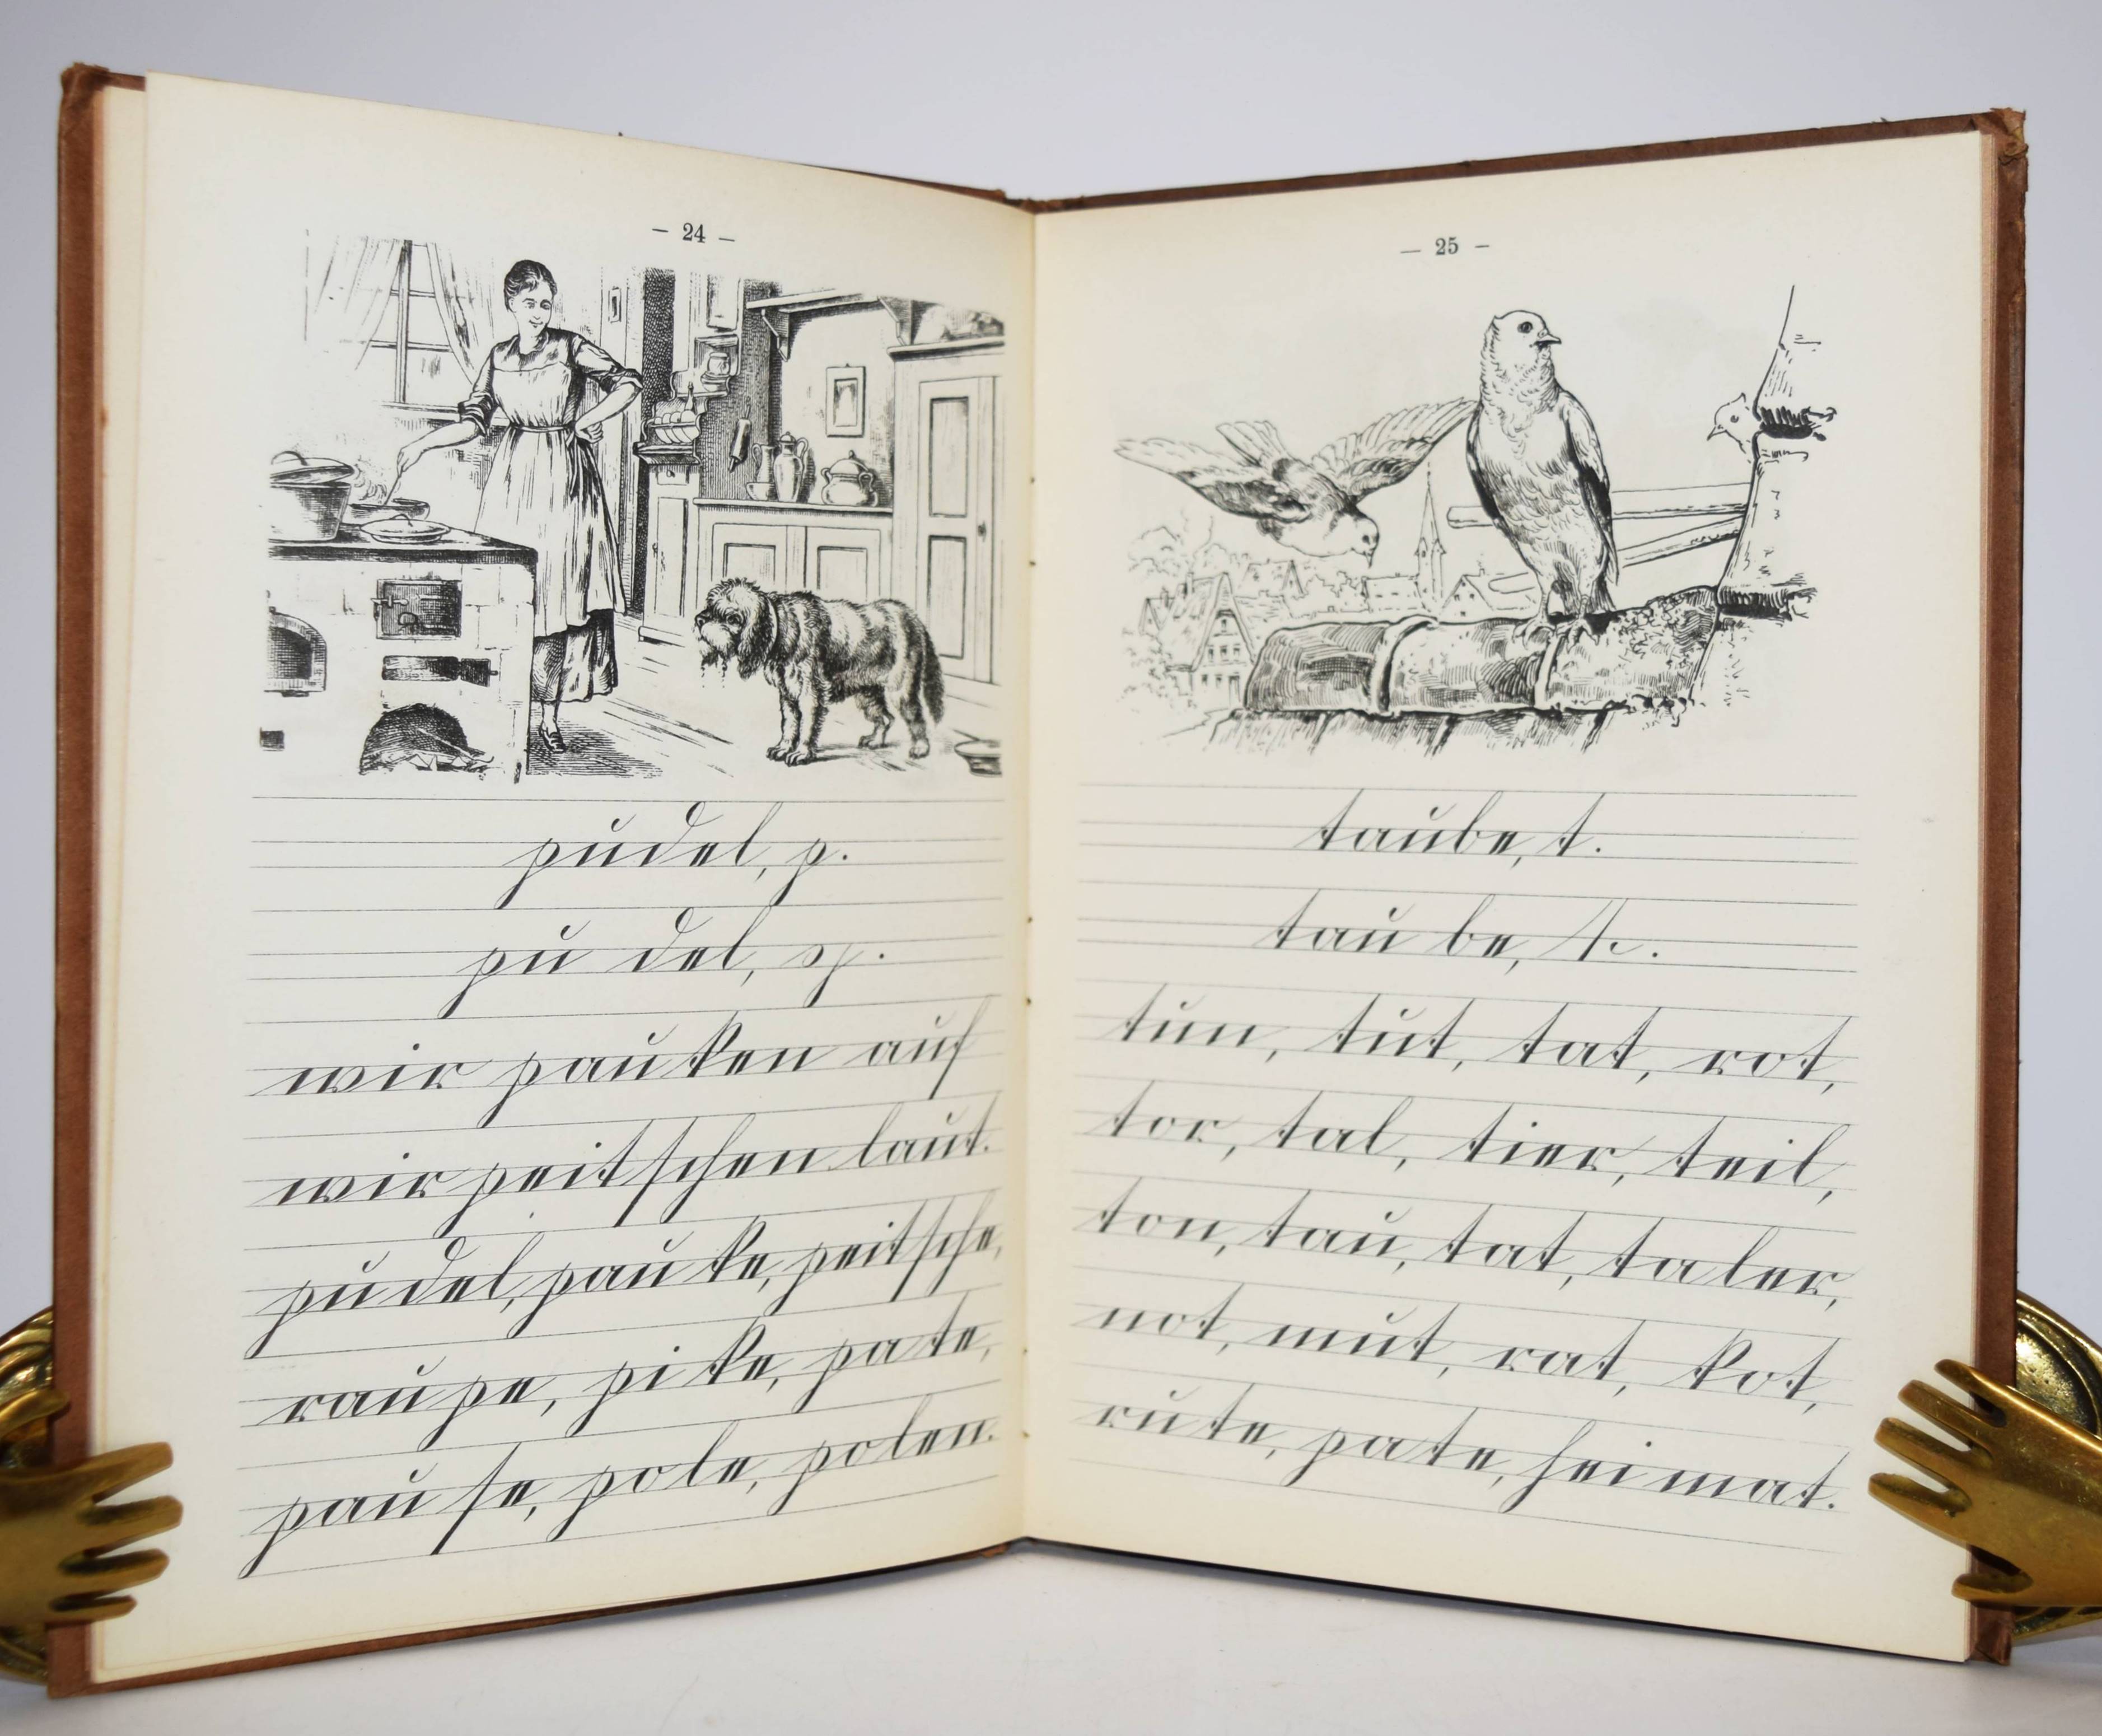 — 24 —
pudel, p.
pu del, p.
wir pau ken auf
wir peitschen laut.
pu del, pau ke, peitsche,
rau pe, pi ke, pa te,
pau se, po le, polen.
— 25 —
taube, t.
tau be, t.
tun, tut, tat, rot,
tor, tal, tier, teil,
ton, tau, tat, ta ler,
not, mut, rat, kot,
ru te, pa te, hei mat.